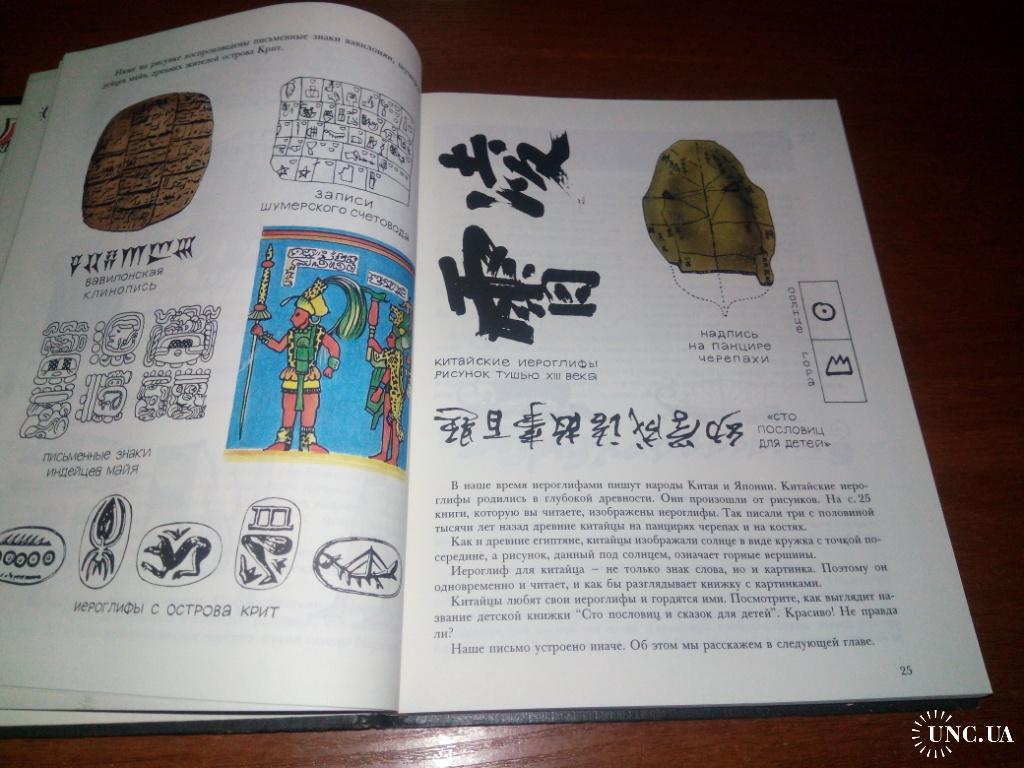 Ниже на рисунке воспроизведены письменные знаки вавилонян,
дейцев майя, древних жителей острова Крит.
ЗАПИСИ
ШУМЕРСКОГО СЧЕТОВОДА
ВАВИЛОНСКАЯ
КЛИНОПИСЬ
ПИСЬМЕННЫЕ ЗНАКИ
ИНДЕЙЦЕВ МАЙЯ
ИЕРОГЛИФЫ С ОСТРОВА КРИТ
КИТАЙСКИЕ ИЕРОГЛИФЫ
РИСУНОК ТУШЬЮ XIII ВЕКА
НАДПИСЬ
НА ПАНЦИРЕ
ЧЕРЕПАХИ
СОЛНЦЕ
ГОРА
幼学成语故事百题
«СТО
ПОСЛОВИЦ
ДЛЯ ДЕТЕЙ»
В наше время иероглифами пишут народы Китая и Японии. Китайские иеро-
глифы родились в глубокой древности. Они произошли от рисунков. На с. 25
книги, которую вы читаете, изображены иероглифы. Так писали три с половиной
тысячи лет назад древние китайцы на панцирях черепах и на костях.
Как и древние египтяне, китайцы изображали солнце в виде кружка с точкой по-
середине, а рисунок, данный под солнцем, означает горные вершины.
Иероглиф для китайца – не только знак слова, но и картинка. Поэтому он
одновременно и читает, и как бы разглядывает книжку с картинками.
Китайцы любят свои иероглифы и гордятся ими. Посмотрите, как выглядит на-
звание детской книжки "Сто пословиц и сказок для детей". Красиво! Не правда
ли?
Наше письмо устроено иначе. Об этом мы расскажем в следующей главе.
25
UNC.UA